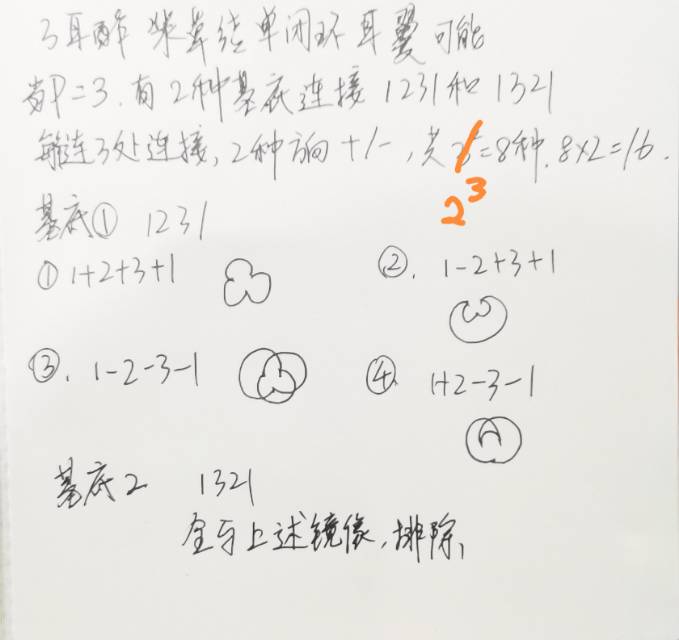 3耳酢浆草结单闭环耳翼可能
当P=3.有2种基底连接 1231和1321
每连3处连接,2种方向+/-,共=8种.8×2=16.
2³
基底① 1231
① 1+2+3+1
②. 1-2+3+1
③. 1-2-3-1
④ 1+2-3-1
基底2 1321
全与上述镜像,排除,